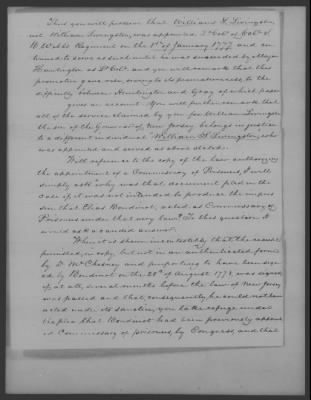 Thus you will perceive that William S. Livingston,
not William Livingston, was appointed Lt Col. of Col. S.
B. Webb's Regiment on the 1st of January 1777 and con-
tinued to serve as such until he was succeeded by Major
Huntington as Lt Col. and you will remark that this
promotion gave rise, owing to its prematureness, to the
difficulty between Huntington and Gray of which paper
gives an account. You will further remark that
all of the service claimed by you for William Livingston
the son of the Governor of New Jersey belongs in justice
to a different individual "William S. Livingston," who
was appointed and served as above stated.
With reference to the copy of the law authorizing
the appointment of a Commissary of Prisoners, I will
simply ask why was that document filed in the
case if it was not intended to produce the impres-
sion that Elias Boudinot, acted as Commissary of
Prisoners under that very law? To this question I
would ask a candid answer.
When it is shown incontestibly that the receipt
furnished, in copy, but not in an authenticated form
by D. McChesney and purporting to have been sign-
ed by Boudinot on the 28th of August 1778, was signed,
if at all, several months before the law of New Jersey
was passed and that, consequently, he could not have
acted under its sanction, you take refuge under
the plea that Boudinot had been previously appoint-
ed Commissary of prisoners, by Congress, and that